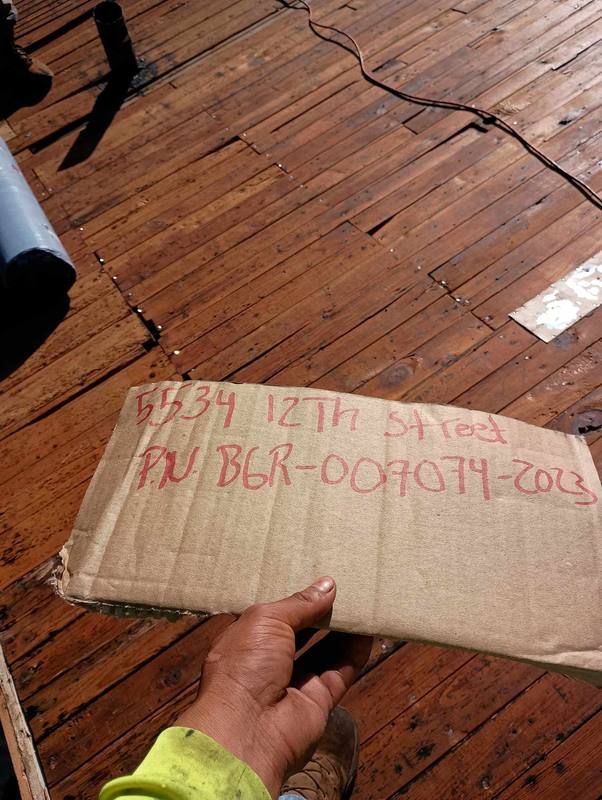 5534 12Th Street
P.N. B6R-007074-2023